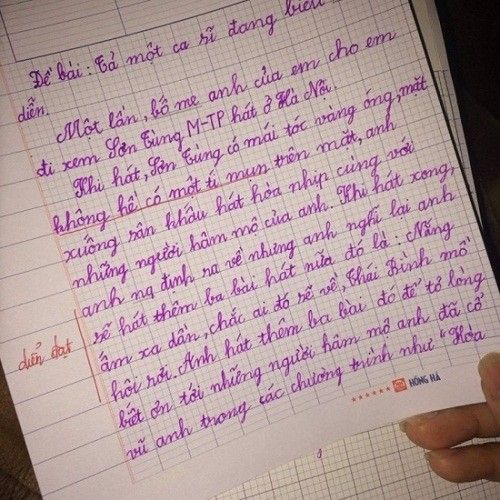 Đề bài: Tả một ca sĩ đang biểu
diễn.
Một lần, bố mẹ anh của em cho em
đi xem Sơn Tùng M-TP hát ở Hà Nội.
Khi hát, Sơn Tùng có mái tóc vàng óng, mặt
không hề có một tí mụn trên mặt, anh
xuống sân khấu hát hòa nhịp cùng với
những người hâm mộ của anh. Khi hát xong,
anh na định ra về nhưng anh nghĩ lại anh
sẽ hát thêm ba bài hát nữa đó là: Nắng
ấm xa dần, chắc ai đó sẽ về, Thái Bình mồ
hôi rơi. Anh hát thêm ba bài đó để tỏ lòng
biết ơn tới những người hâm mộ anh đã cổ
vũ anh trong các chương trình như "Hòa
diễn đạt
HỒNG HÀ